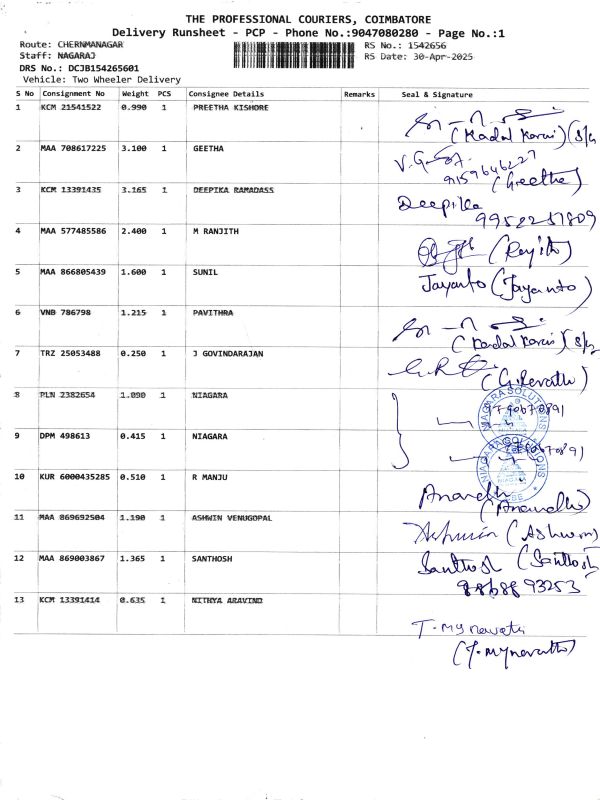 THE PROFESSIONAL COURIERS, COIMBATORE
Delivery Runsheet - PCP - Phone No.:9047080280 - Page No.:1
Route: CHERNMANAGAR
RS No.: 1542656
Staff: NAGARAJ
RS Date: 30-Apr-2025
DRS No.: DCJB154265601
Vehicle: Two Wheeler Delivery
S No Consignment No Weight PCS Consignee Details Remarks Seal & Signature
1 KCM 21541522 0.990 1 PREETHA KISHORE
(Kadal Karai)
2 MAA 708617225 3.100 1 GEETHA
9159646227
(Greetha)
3 KCM 13391435 3.165 1 DEEPIKA RAMADASS
Deepika
9952237809
4 MAA 577485586 2.400 1 M RANJITH
5 MAA 866805439 1.600 1 SUNIL
Jayanto (Jayanto)
6 VNB 786798 1.215 1 PAVITHRA
(Kadal Karai)
7 TRZ 25053488 0.250 1 J GOVINDARAJAN
(G.Revathi)
8 PLN 2382654 1.090 1 NIAGARA
NIAGARA SOLUTIONS
9 DPM 498613 0.415 1 NIAGARA
NIAGARA SOLUTIONS
10 KUR 6000435285 0.510 1 R MANJU
Anandhi
(Anandhi)
11 MAA 869692504 1.190 1 ASHWIN VENUGOPAL
Ashwin (Ashwin)
12 MAA 869003867 1.365 1 SANTHOSH
Santhosh (Santhosh)
13 KCM 13391414 0.635 1 NITHYA ARAVIND